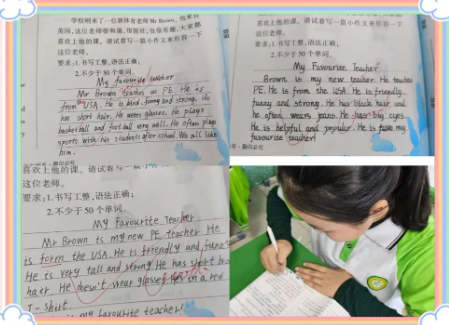 学校刚来了一位新体育老师Mr Brown,他来自
美国,这位老师很和蔼,很强壮,也很有趣,大家都
喜欢上他的课。请试着写一篇小作文来形容一下
这位老师。
要求:1.书写工整,语法正确;
2.不少于50个单词。
My favourite teacher
Mr Brown teaches us PE. He is
from USA. He is kind, funny and strong. He
has short hair. He wears glasses. He plays
basketball and football very well. He often plays
sports with his students after school. We all like
him.
喜欢上他的课。请试着写一篇小作文来形容一下
这位老师。
要求:1.书写工整,语法正确;
2.不少于50个单词。
My Favourite Teacher
Brown is my new teacher. He teaches
PE. He is from the USA. He is friendly,
funny and strong. He has black hair and
he often wears jeans. He has big eyes.
He is helpful and popular. He is my
favourite teacher!
喜欢上他的课。请试着写一篇小作文
这位老师。
要求:1.书写工整,语法正确;
2.不少于50个单词。
My Favourite Teacher
Mr Brown is my new PE teacher. He
is form the USA. He is friendly and
He is very tall and strong. He has short
haer. He doesn't wear glasses. He's in a red
T-short
my favourite teacher!